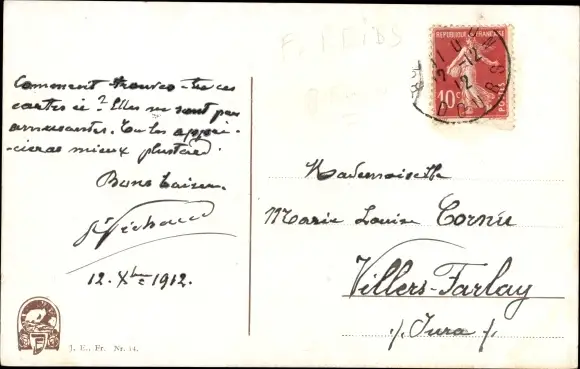 Comment trouves-tu ces
cartes ci? Elles ne sont pas
amusantes. Tu les appré-
-cieras mieux plus tard.
Bons baisers.
12. Xbre 1912.
J. E., Fr. Nr. 14.
REPUBLIQUE FRANÇAISE
10
12-12
12
DOUBS
Mademoiselle
Marie Louise Cornu
Villers-Farlay
./. Jura ./.